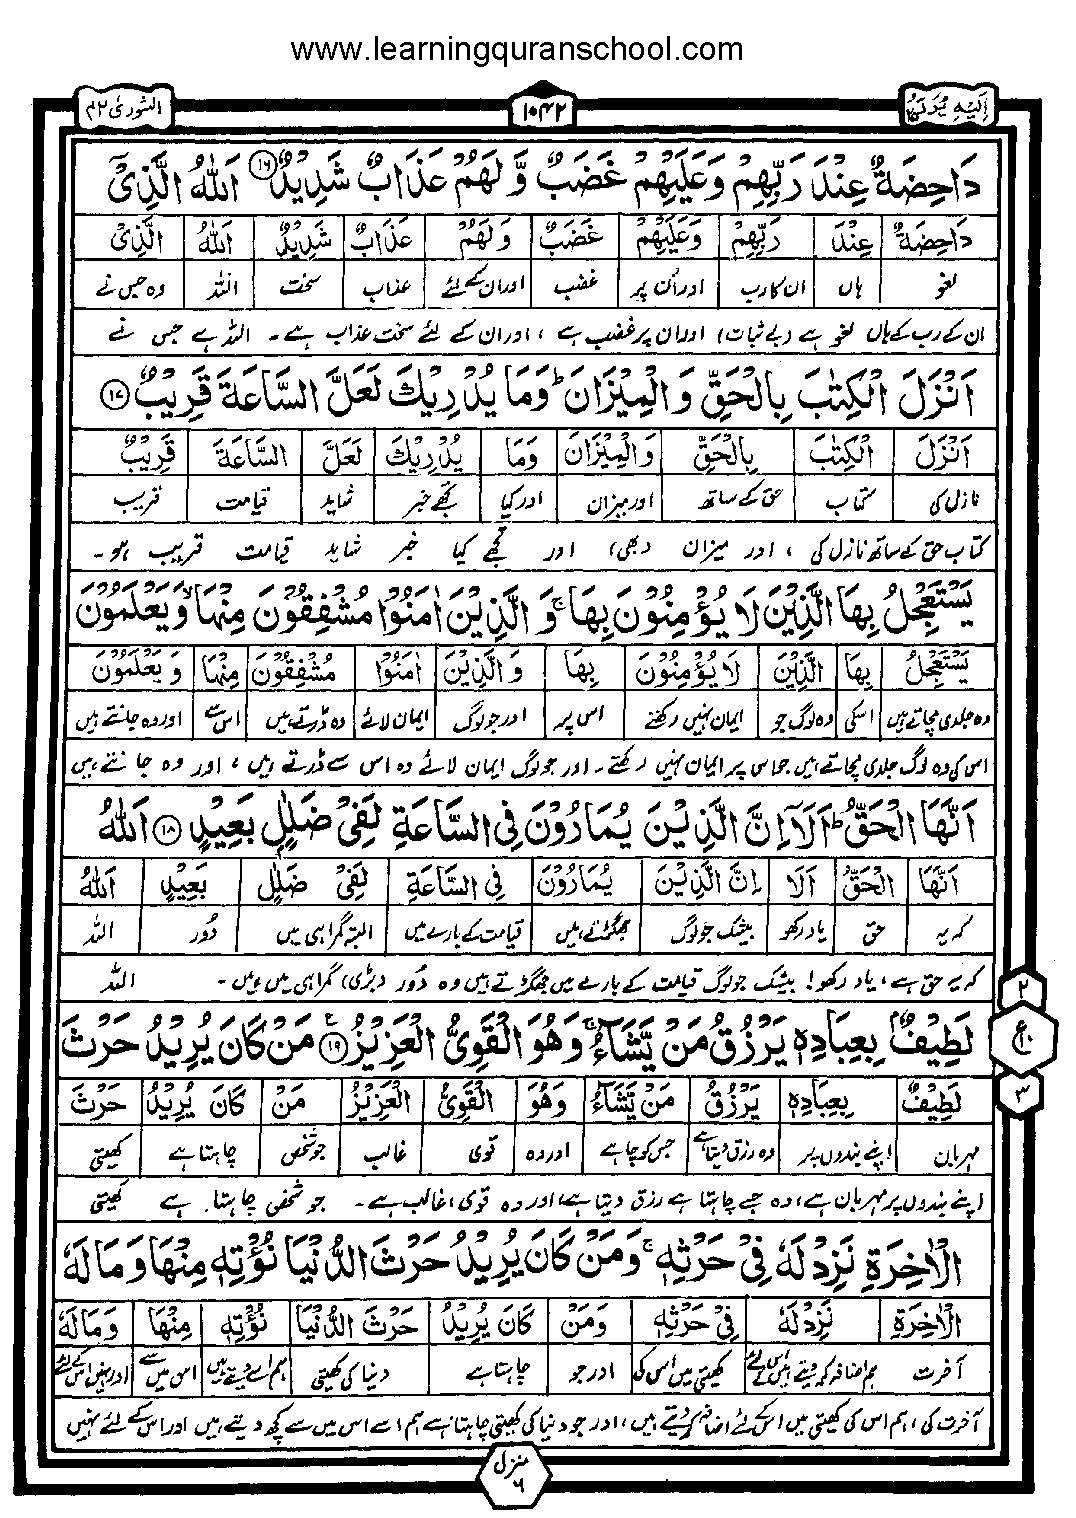 www.learningquranschool.com
الشورى ۴۲
۱۰۴۲
اِلَیْهِ یُرَدُّ
دَاحِضَةٌ عِنْدَ رَبِّهِمْ وَعَلَیْهِمْ غَضَبٌ وَّ لَهُمْ عَذَابٌ شَدِیْدٌ ۱۶ اَللّٰهُ الَّذِیْۤ
دَاحِضَةٌ عِنْدَ رَبِّهِمْ وَعَلَیْهِمْ غَضَبٌ وَلَهُمْ عَذَابٌ شَدِیْدٌ اَللّٰهُ الَّذِیْۤ
لغو ہاں ان کا رب اور اُن پر غضب اور ان کے لئے عذاب سخت اللہ وہ جس نے
ان کے رب کے ہاں لغو ہے (بے ثبات) اور ان پر غضب ہے ، اور ان کے لئے سخت عذاب ہے ۔ اللہ ہے جس نے
اَنْزَلَ الْكِتٰبَ بِالْحَقِّ وَ الْمِیْزَانَ ؕ وَمَا یُدْرِیْكَ لَعَلَّ السَّاعَةَ قَرِیْبٌ ۱۷
اَنْزَلَ الْكِتٰبَ بِالْحَقِّ وَالْمِیْزَانَ وَمَا یُدْرِیْكَ لَعَلَّ السَّاعَةَ قَرِیْبٌ
نازل کی کتاب حق کے ساتھ اور میزان اور کیا تجھے خبر شاید قیامت قریب
کتاب حق کے ساتھ نازل کی ، اور میزان (بھی) اور تجھے کیا خبر شاید قیامت قریب ہو ۔
یَسْتَعْجِلُ بِهَا الَّذِیْنَ لَا یُؤْمِنُوْنَ بِهَا ۚ وَ الَّذِیْنَ اٰمَنُوْا مُشْفِقُوْنَ مِنْهَا ۙ وَ یَعْلَمُوْنَ
یَسْتَعْجِلُ بِهَا الَّذِیْنَ لَا یُؤْمِنُوْنَ بِهَا وَ الَّذِیْنَ اٰمَنُوْا مُشْفِقُوْنَ مِنْهَا وَ یَعْلَمُوْنَ
وہ جلدی مچاتے ہیں اسکی وہ لوگ جو ایمان نہیں رکھتے اس پر اور جو لوگ ایمان لائے وہ ڈرتے ہیں اس سے اور وہ جانتے ہیں
اس کی وہ لوگ جلدی مچاتے ہیں جو اس پر ایمان نہیں رکھتے ۔ اور جو لوگ ایمان لائے وہ اس سے ڈرتے ہیں ، اور وہ جانتے ہیں
اَنَّهَا الْحَقُّ ؕ اَلَاۤ اِنَّ الَّذِیْنَ یُمَارُوْنَ فِی السَّاعَةِ لَفِیْ ضَلٰلٍۭ بَعِیْدٍ ۱۸ اَللّٰهُ
اَنَّهَا الْحَقُّ اَلَا اِنَّ الَّذِیْنَ یُمَارُوْنَ فِی السَّاعَةِ لَفِیْ ضَلٰلٍ بَعِیْدٍ اَللّٰهُ
کہ یہ حق یاد رکھو بیشک جو لوگ جھگڑتے ہیں قیامت کے بارے میں البتہ گمراہی میں دُور اللہ
کہ یہ حق ہے ، یاد رکھو! بیشک جو لوگ قیامت کے بارے میں جھگڑتے ہیں وہ دُور (بڑی) گمراہی میں ہیں ۔ اللہ
لَطِیْفٌۢ بِعِبَادِهٖ یَرْزُقُ مَنْ یَّشَآءُ ۚ وَهُوَ الْقَوِیُّ الْعَزِیْزُ ۱۹ مَنْ كَانَ یُرِیْدُ حَرْثَ
لَطِیْفٌ بِعِبَادِهٖ یَرْزُقُ مَنْ یَّشَآءُ وَهُوَ الْقَوِیُّ الْعَزِیْزُ مَنْ كَانَ یُرِیْدُ حَرْثَ
مہربان اپنے بندوں پر وہ رزق دیتا ہے جس کو چاہے اور وہ قوی غالب جو شخص چاہتا ہے کھیتی
اپنے بندوں پر مہربان ہے ، وہ جسے چاہتا ہے رزق دیتا ہے ، اور وہ قوی غالب ہے ۔ جو شخص چاہتا ہے کھیتی
الْاٰخِرَةِ نَزِدْ لَهٗ فِیْ حَرْثِهٖ ۚ وَمَنْ كَانَ یُرِیْدُ حَرْثَ الدُّنْیَا نُؤْتِهٖ مِنْهَا وَمَا لَهٗ
الْاٰخِرَةِ نَزِدْ لَهٗ فِیْ حَرْثِهٖ وَمَنْ كَانَ یُرِیْدُ حَرْثَ الدُّنْیَا نُؤْتِهٖ مِنْهَا وَمَا لَهٗ
آخرت ہم اضافہ کر دیتے ہیں اس کے لئے کھیتی میں اس کی اور جو چاہتا ہے دنیا کی کھیتی ہم اسے دیتے ہیں اس میں سے اور نہیں اس کے لئے
آخرت کی ، ہم اس کی کھیتی میں اس کے لئے اضافہ کر دیتے ہیں ، اور جو دنیا کی کھیتی چاہتا ہے ہم اسے اس میں سے کچھ دیتے ہیں اور اس کے لئے نہیں
۲
ع
۱۰
۳
منزل
۶